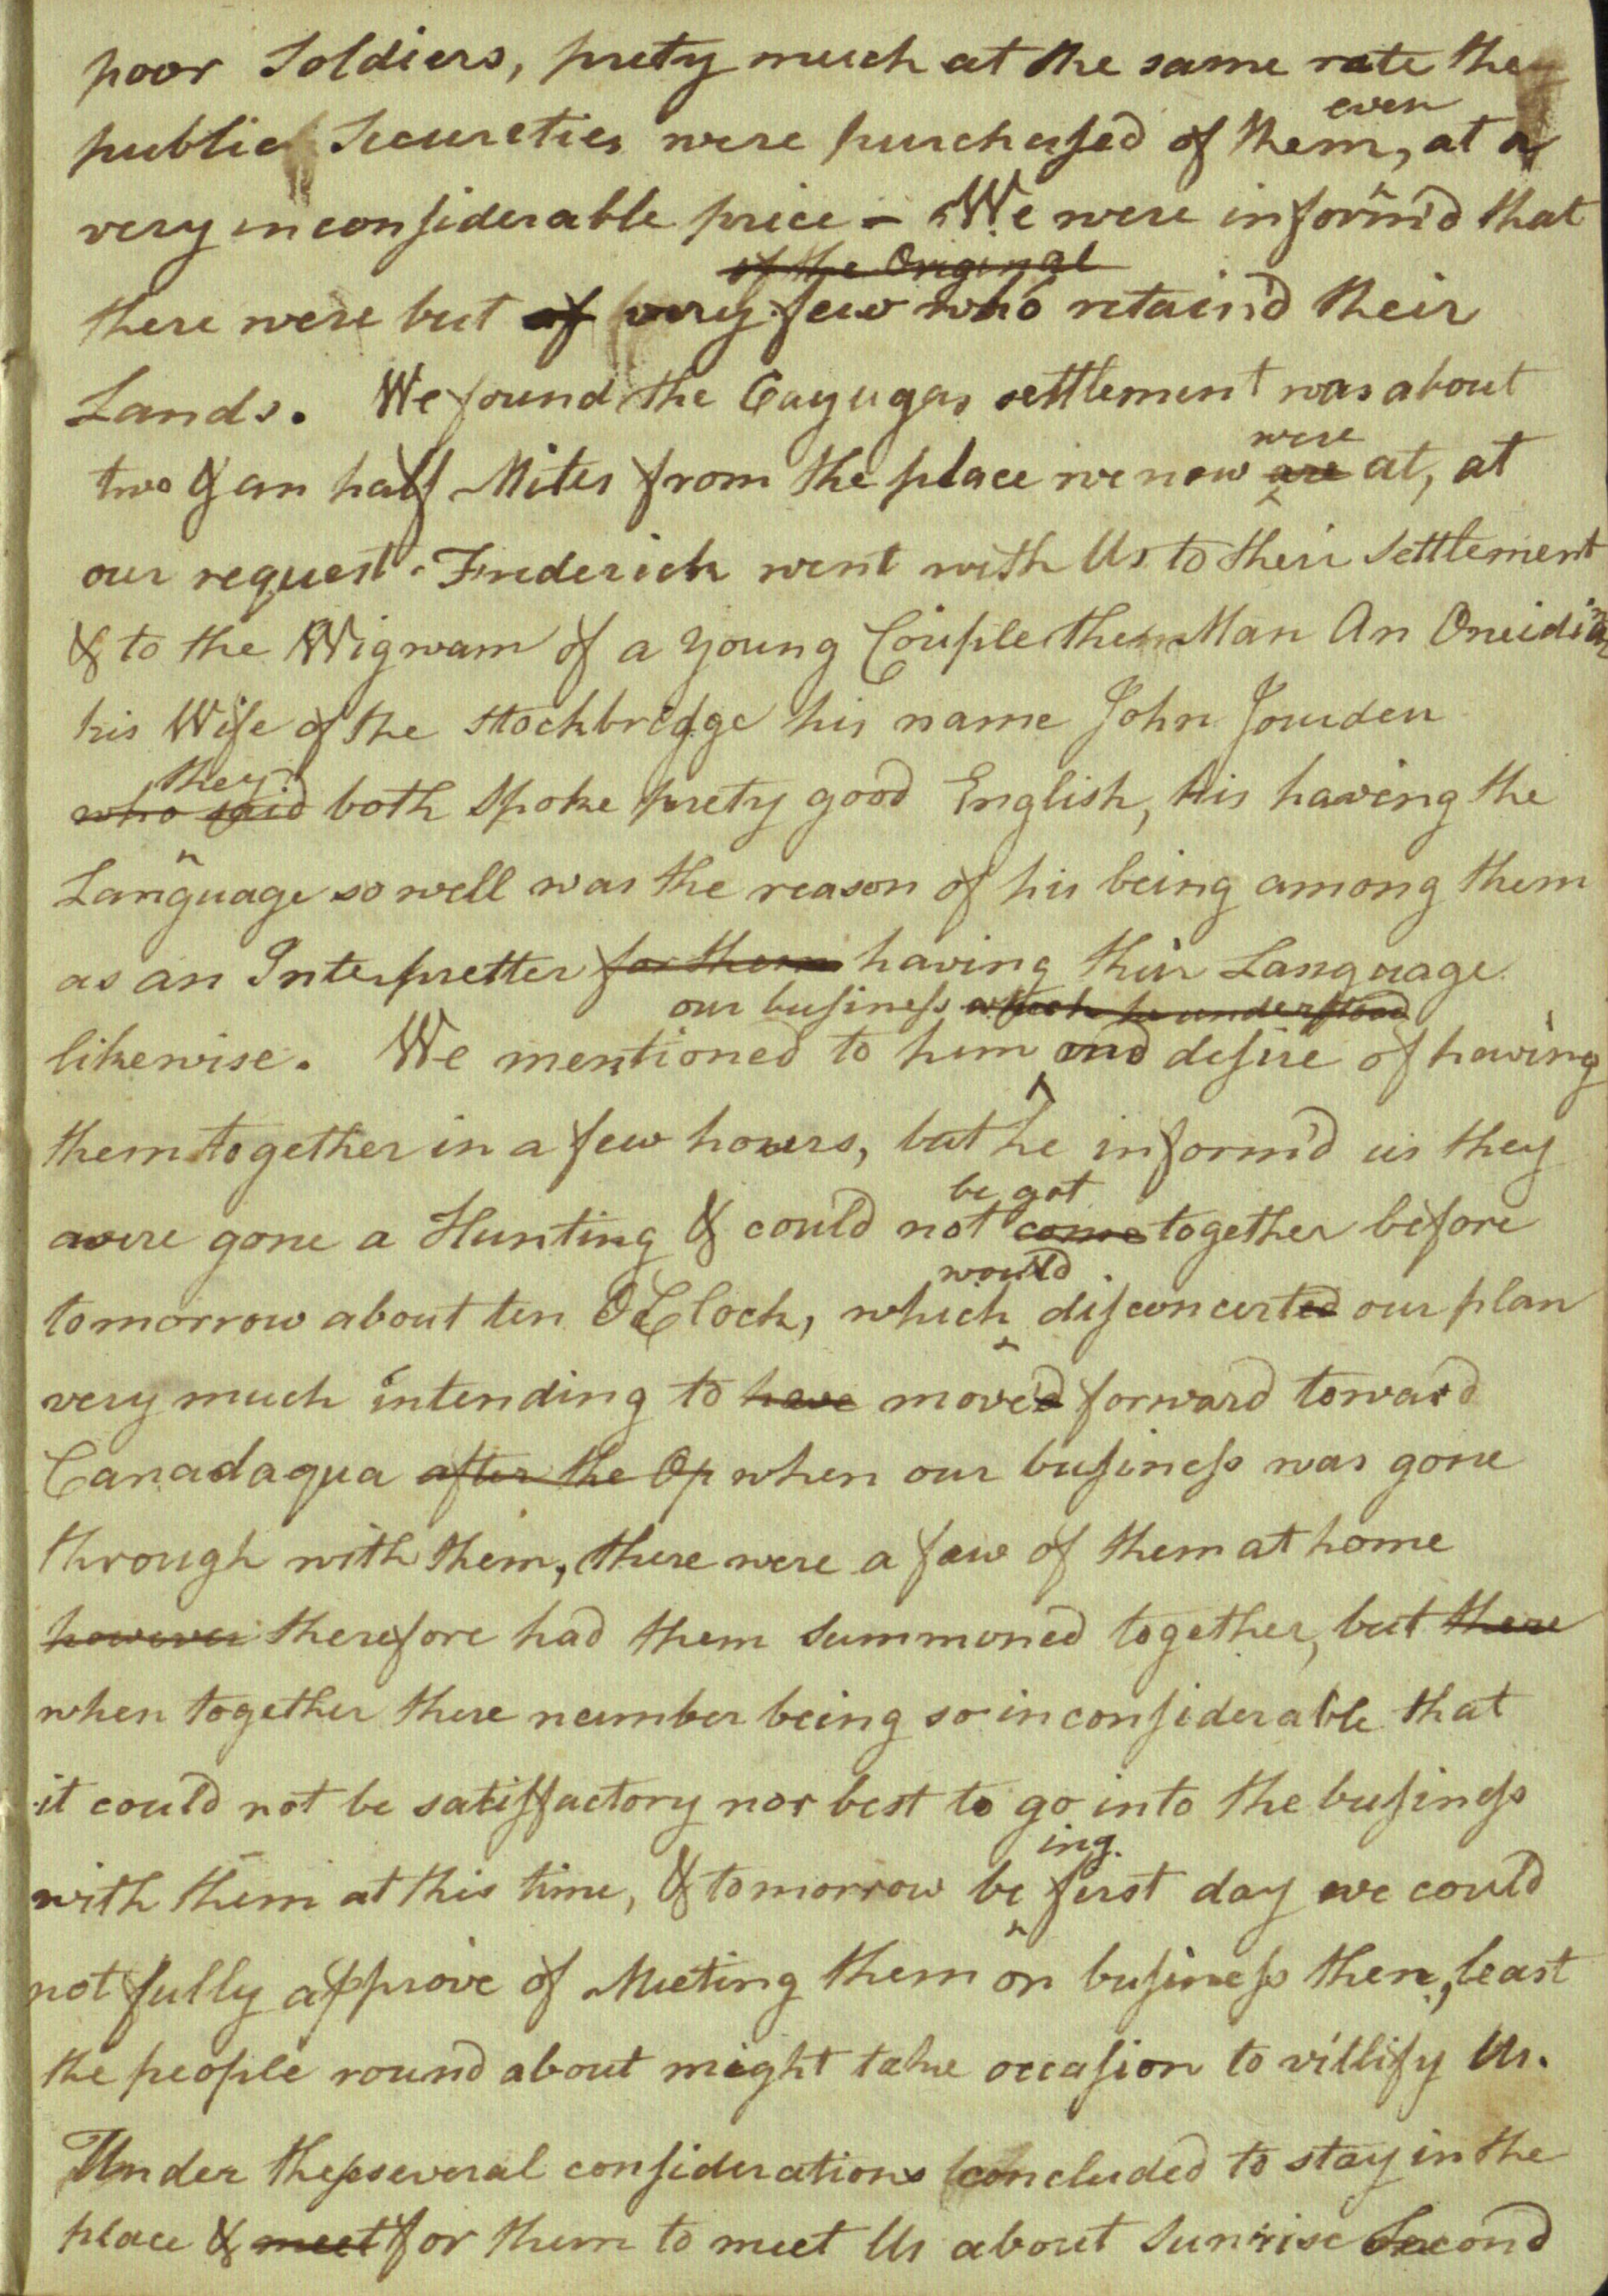 poor Soldiers, prety much at the same rate the
even
public Secureties were purchased of them, at a
very inconsiderable price – We were inform'd that
of the Original
there were but of very few who retain'd their
Lands. We found the Cayugas settlement was about
were
two & an half Miles from the place we now are at, at
our request Frederick went with Us to their Settlement
& to the Wigwam of a young Couple the Man An Oneidian
his Wife of the Stockbridge his name John Jourden
they
who said both Spoke prety good English, his having the
Language so well was the reason of his being among them
as an Interpretter for them having their Language
our business which he understood
likewise. We mentioned to him and desire of having
them together in a few howers, but he inform'd us they
be got
were gone a Hunting & could not come together before
would
tomorrow about ten OClock, which disconcerted our plan
very much intending to have move'd forward toward
Canadaqua after the Op when our business was gone
through with them, there were a few of them at home
however therefore had them summoned together, but there
when together there number being so inconsiderable that
it could not be satisffactory nor best to go into the business
ing
with them at this time, & tomorrow be first day we could
not fully approve of Meeting them on business then, least
the people round about might take occasion to villify Us.
Under these several considerations concluded to stay in the
place & meet for them to meet Us about Sunrise Second